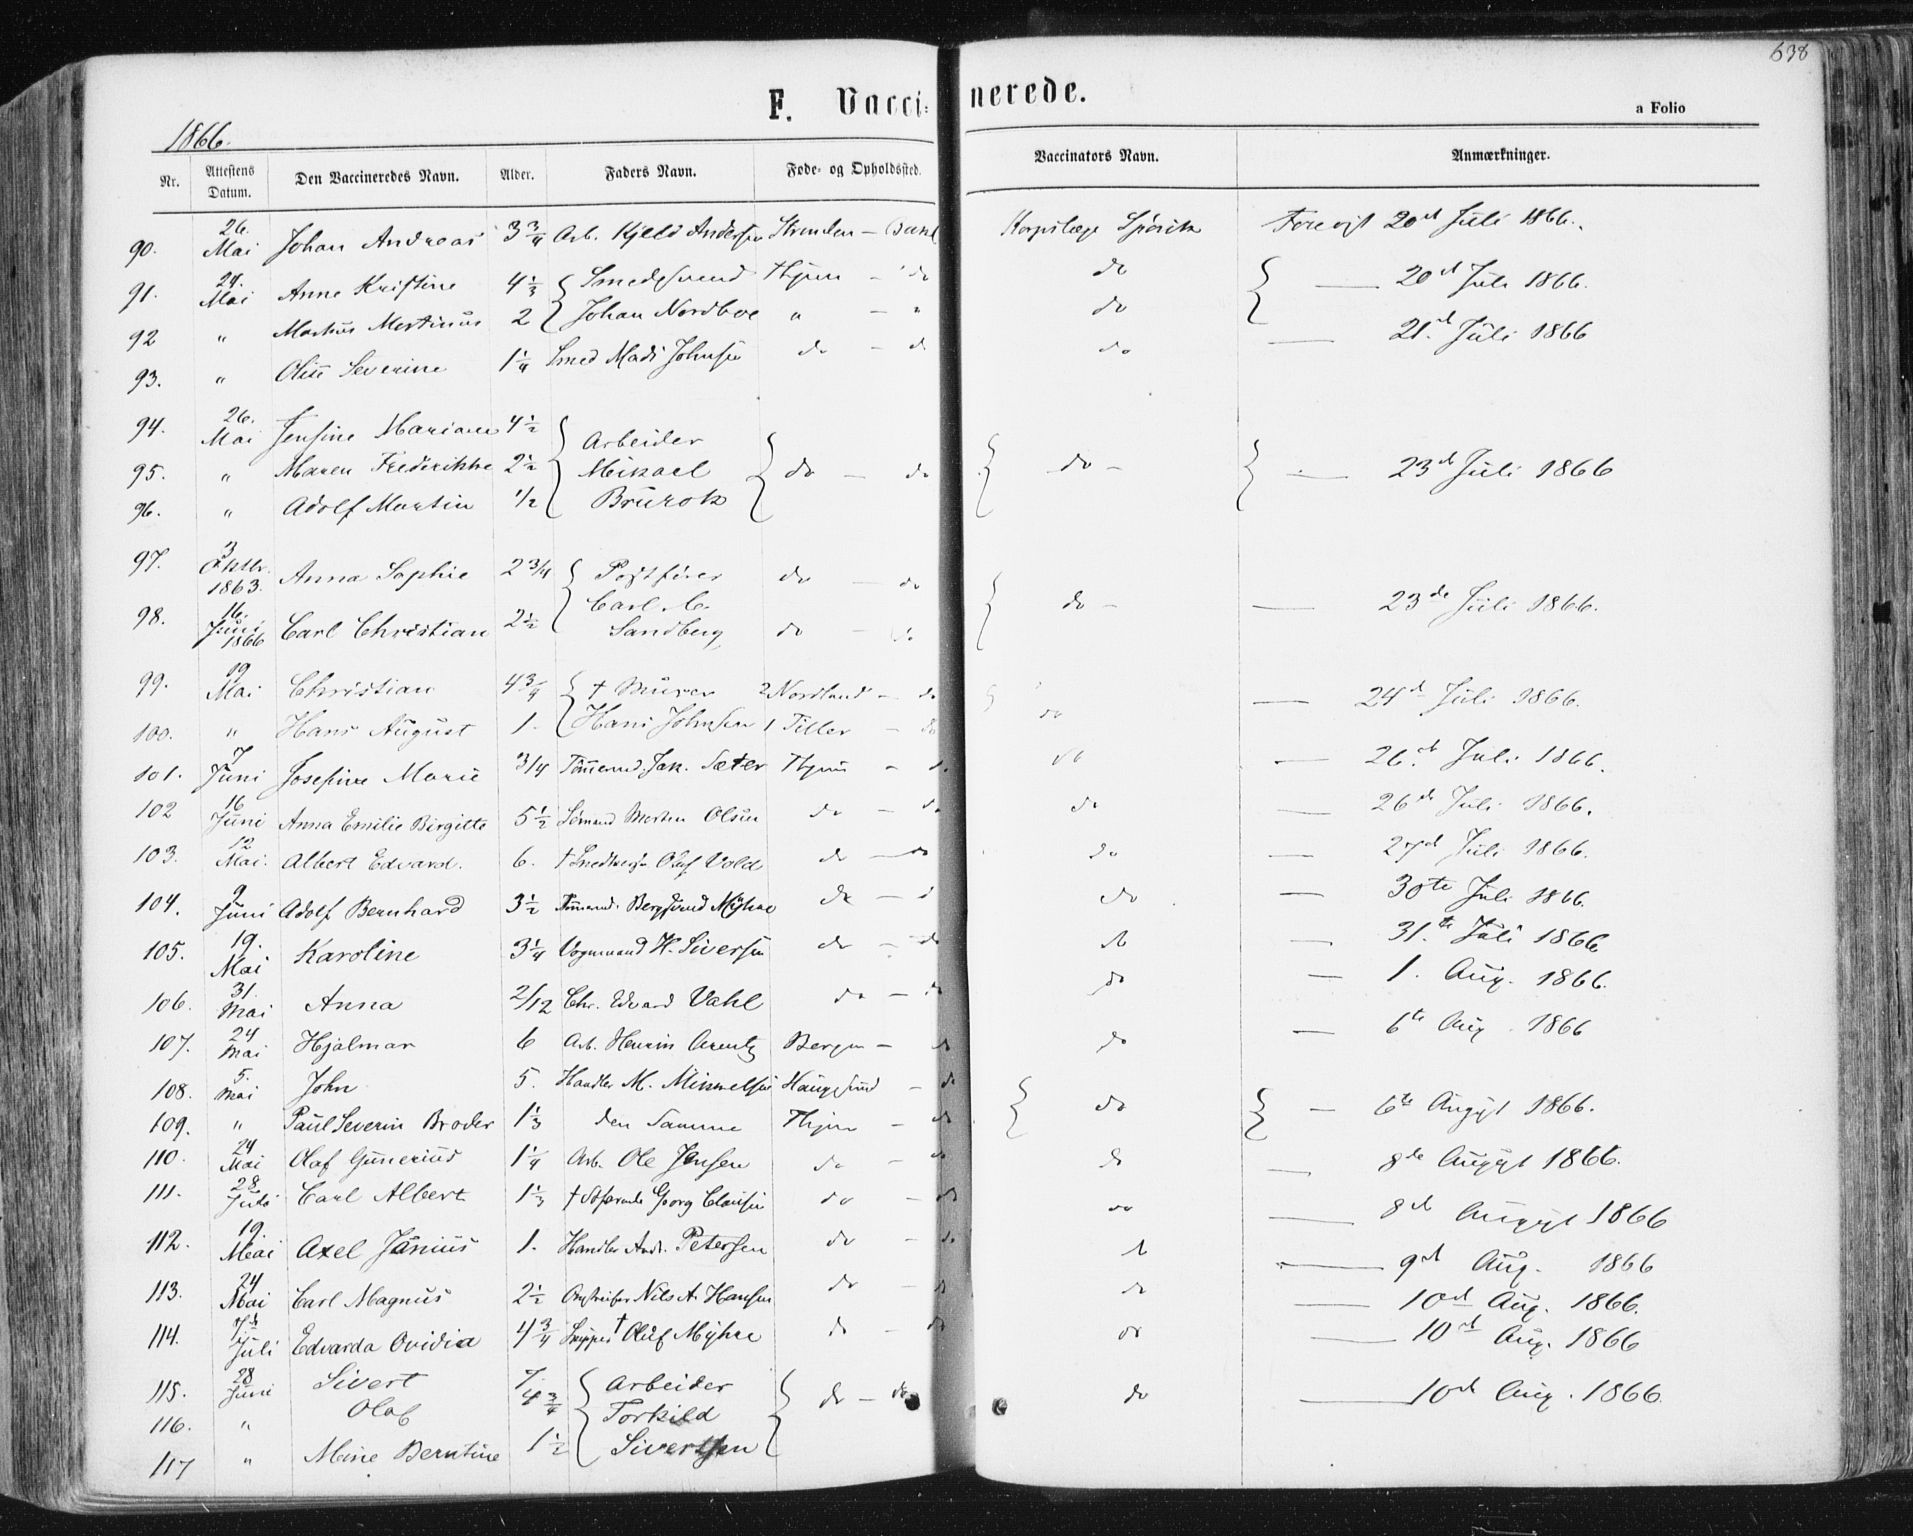 638
F. Vacci=nerede.
a Folio
1866.
Nr. Attestens Datum. Den Vaccineredes Navn. Alder. Faders Navn. Føde- og Opholdssted. Vaccinators Navn. Anmærkninger.
90. 26. Mai Johan Andreas 3 3/4 Arb. Kjeld Andersen Strinden - Bakl Korpslæge Forevist 20d Juli 1866.
91. 24. Mai Anne Kristine 4 1/3 { Smedsvend Thjem - do do { — 20d Juli 1866.
92 " Markus Martinus 2 Johan Nordboe " - " do
93. " Oline Severine 1 1/4 Smed Mads Johnsen do - d do — 21.d Juli 1866
94. 26. Mai Jensine Mariane 4 1/2 { Arbeider
95. " Maren Frederikke 2 1/2 Mikael { do — do { do - { — 23d Juli 1866
96. " Adolf Martin 1/2 Brurok
97. 3 Oktbr. 1863. Anna Sophie 2 3/4 { Postfører do — do
Carl C. { do - — 23de Juli 1866.
98. 16. Juni 1866 Carl Christian 2 1/2 Sandberg do — do
99. 19 Mai Christian 4 3/4 { † Murer 2 Nordland - do — 24d Juli 1866.
100. " Hans August 1. Hans Johnsen 1 Tiller - do do
101. 7 Juni Josefine Marie 3/4 Tømmermd. Jak. Sæter Thjem - d. do — 26.d Juli 1866.
102 16 Juni Anna Emilie Birgitte 5 1/2 Sømand Morten Olsen do - do do — 26de Juli 1866.
103. 12 Mai. Albert Edvard. 6. † Olaf Vold do — do do — 27d Juli 1866.
104. 9 Juni Adolf Bernhard 3 1/2 Myhre do - d do — 30te Juli 1866.
105. 19. Mai Karoline 3 1/4 Vognmand H. Siversen do - do do — 31.te Juli 1866
106. 31. Mai Anna 2/12 Chr. Edvard Vahl do - do do — 1. Aug. 1866.
107. 24 Mai Hjalmar 6 Arb. Henrin Arentz Bergen - do do — 6te Aug. 1866
108. 5. Mai John 5. Handler M. Mikkelsen Haugesund - do
109. " Paul Severin Broder 1 1/3 den Samme Thjem - do { do { — 6te Augyst 1866.
110. 24 Mai Olaf Gunerius 1 1/4 Arb. Ole Jensen do - do do — 8de Augyst 1866.
111. 28 Juli Carl Albert 1 1/3 † Georg Clausen do - do do — 8d Augyst 1866
112. 19. Mai Axel Janius 1. Handler Andr. Petersen do - do do — 9d Aug. 1866
113. 24 Mai Carl Magnus 2 1/2 Nils A. Hansen do - do do — 10d Aug. 1866.
114. 7d Juli Edvarda Ovidia 4 3/4 Skipper † Oluf Myhre do - do do — 10d Aug. 1866
115. 28 Juni Sivert 7. { Arbeider
116. " Olaf 4 3/4 Torkild { do - do do — 10d Aug. 1866.
117 " Mine Berntine 1 1/2 Sivertsen